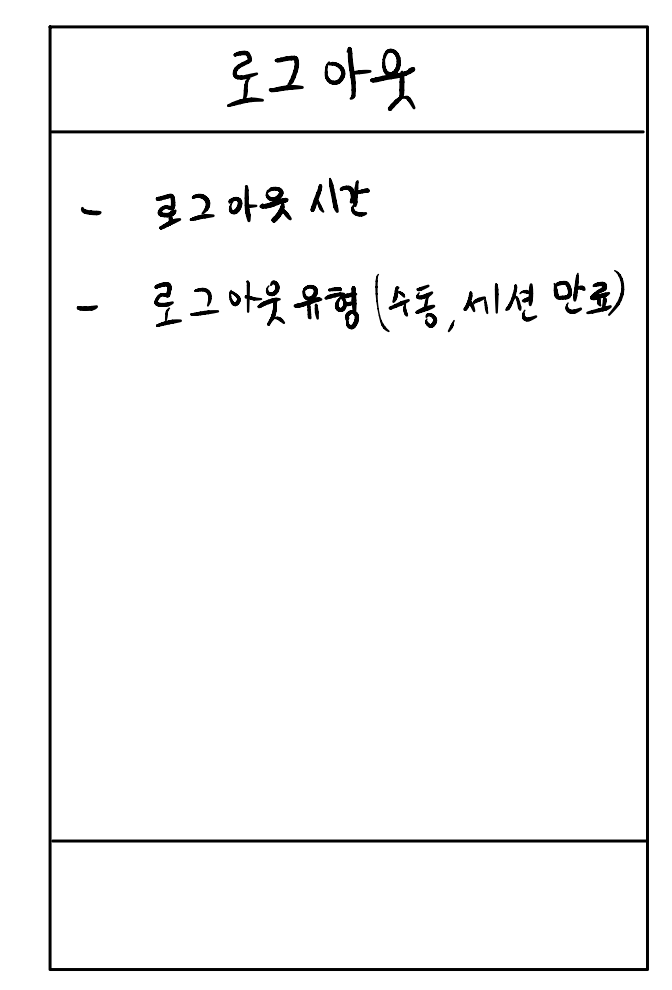 로그아웃
- 로그아웃 시간
- 로그아웃 유형 (수동, 세션 만료)